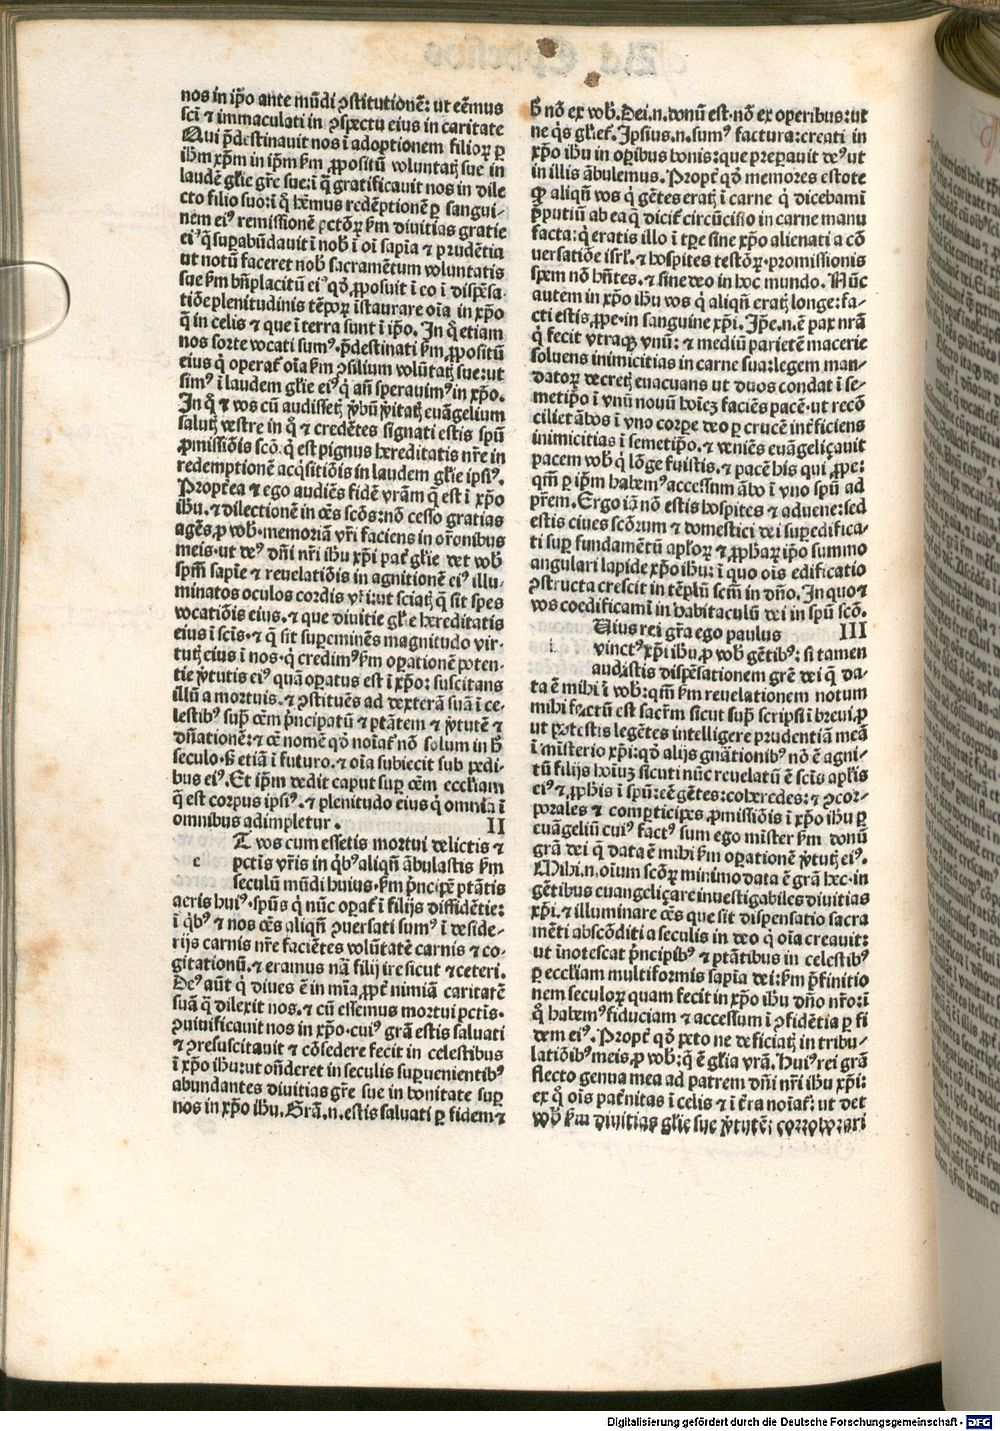 nos in ip̄o ante mūdi ꝯstitutionē: ut eēmus
sc̄i ⁊ immaculati in ꝯspectu eius in caritate
Qui p̄destinauit nos ī adoptionem filioꝝ ꝑ
ih̄m xp̄m in ip̄m ẜm ꝓpositū voluntatꝭ sue in
laudē gl̄ie gr̄e sue: ī q̄ gratificauit nos in dile
cto filio suo: ī q̊ hēmus redēptionē ꝑ sangui-
nem eiꝰ remissionē pctōꝝ ẜm diuitias gratie
eiꝰ q̄ suꝑabūdauit ī nob̄ ī oī sapīa ⁊ prudētia
ut notū faceret nob̄ sacramētum voluntatis
sue ẜm bn̄placitū eiꝰ qd̓ ꝓposuit ī eo ī dispēsa
tiōe plenitudinis tēpoꝝ īstaurare oīa in xp̄o
q̄ in celis ⁊ que ī terra sunt ī ip̄o. In q̊ etiam
nos sorte vocati sumꝰ. p̄destinati ẜm ꝓpositū
eius q̇ operat̄ oīa ẜm ꝯsilium volūtatꝭ sue: ut
simꝰ ī laudem gl̄ie eiꝰ q̇ añ sperauimꝰ in xp̄o.
In q̊ ⁊ vos cū audissetꝭ v̓bū v̓itatꝭ euāgelium
salutꝭ vestre in q̊ ⁊ credētes signati estis spū
ꝓmissiōis scō. q̇ est pignus hereditatis nr̄e in
redemptionē acq̇sitiōis in laudem gl̄ie ipsiꝰ.
Propt̓ea ⁊ ego audiēs fidē vr̄am q̄ est ī xp̄o
ih̄u. ⁊ dilectionē in oēs scōs: nō cesso gratias
agēs ꝓ vob̄. memoriā vr̄i faciens in or̄onibus
meis. ut deꝰ dn̄i nr̄i ih̄u xp̄i pat̓ gl̄ie det vob̄
spm̄ sapīe ⁊ reuelatiōis in agnitionē eiꝰ illu-
minatos oculos cordis vr̄i: ut sciatꝭ q̄ sit spes
vocatiōis eius. ⁊ que diuitie gl̄ie hereditatis
eius ī scīs. ⁊ q̄ sit suꝑeminēs magnitudo vir-
tutꝭ eius ī nos. q̇ credimꝰ ẜm oꝑationē poten-
tie v̓tutis eiꝰ quā oꝑatus est ī xp̄o: suscitans
illū a mortuis. ⁊ ꝯstituēs ad dexterā suā ī ce-
lestibꝰ sup̄ oēm p̓ncipatū ⁊ ptātem ⁊ v̓tutē ⁊
dn̄ationē: ⁊ oē nomē qd̓ noīat̄ nō solum in h̄
seculo. s̄ etiā ī futuro. ⁊ oīa subiecit sub pedi-
bus eiꝰ. Et ip̄m dedit caput suꝑ oēm eccl̄iam
q̄ est corpus ipsiꝰ. ⁊ plenitudo eius q̇ omnia ī
omnibus adimpletur. II
T vos cum essetis mortui delictis ⁊
e pctīs vr̄is in q̇bꝰ aliqn̄ ābulastis ẜm
seculū mūdi huius. ẜm p̓ncipē ptātis
aeris huiꝰ. spūs q̇ nūc oꝑat̄ ī filijs diffidētie:
ī q̇bꝰ ⁊ nos oēs aliqn̄ ꝯuersati sumꝰ ī deside-
rijs carnis nr̄e faciētes volūtatē carnis ⁊ co-
gitationū. ⁊ eramus nā filij ire sicut ⁊ ceteri.
Deꝰ aūt q̇ diues ē in mīa ꝓpt̓ nimiā caritatē
suā q̄ dilexit nos. ⁊ cū essemus mortui pctīs.
ꝯuiuificauit nos in xp̄o. cuiꝰ grā estis saluati
⁊ ꝯresuscitauit ⁊ cōsedere fecit in celestibus
ī xp̄o ih̄u: ut on̄deret in seculis suꝑuenientibꝰ
abundantes diuitias gr̄e sue in bonitate suꝑ
nos in xp̄o ih̄u. Grā. n. estis saluati ꝑ fidem ⁊
h̄ nō ex vob̄. Dei. n. donū est. nō ex operibus: ut
ne q̇s gl̄iet̄. Ipsius. n. sumꝰ factura: creati in
xp̄o ih̄u in oꝑibus bonis: que preꝑauit deꝰ ut
in illis ābulemus. Propt̓ qd̓ memores estote
ꝙ aliqn̄ vos q̇ gētes eratꝭ ī carne q̇ dicebamī
p̄putiū ab ea q̄ dicit̄ circūcisio in carne manu
facta: q̇ eratis illo ī tp̄e sine xp̄o alienati a cō
uersatiōe isrl̄. ⁊ hospites testōꝝ. promissionis
spem nō hn̄tes. ⁊ sine deo in hoc mundo. Nūc
autem in xp̄o ih̄u vos q̇ aliqn̄ eratꝭ longe: fa-
cti estis ꝓpe. in sanguine xp̄i. Ip̄e. n. ē pax nrā
q̇ fecit vtraqꝫ vnū: ⁊ mediū parietē macerie
soluens inimicitias in carne sua: legem man-
datoꝝ decretꝭ euacuans ut duos condat ī se-
metip̄o ī vnū nouū hoīeꝫ faciēs pacē. ut recō
ciliet ābos ī vno corꝑe deo ꝑ crucē intficiens
inimicitias ī semetip̄o. ⁊ veniēs euāgeliçauit
pacem vob̄ q̇ lōge fuistis. ⁊ pacē his qui ꝓpe:
qm̄ ꝑ ip̄m habemꝰ accessum ābo ī vno spū ad
pr̄em. Ergo iā nō estis hospites ⁊ aduene: sed
estis ciues scōrum ⁊ domestici dei suꝑedifica-
ti suꝑ fundamētū apl̄oꝝ ⁊ ꝓphaꝝ ip̄o summo
angulari lapide xp̄o ih̄u: ī quo oīs edificatio
ꝯstructa crescit in tēplū scm̄ in dn̄o. In quo ⁊
vos coedificamī in habitaculū dei in spū scō.
Uius rei gr̄a ego paulus III
vinctꝰ xp̄i ih̄u ꝓ vob̄ gētibꝰ: si tamen
audistis dispēsationem grē dei q̄ da-
ta ē mihi ī vob̄: qm̄ ẜm reuelationem notum
mihi factū est sacr̄m sicut sup̄ scripsi ī breui ꝓ
ut potestis legētes intelligere prudentiam meā
ī mīsterio xp̄i: qd̓ alijs gnātionibꝰ nō ē agni-
tū filijs hoīuꝫ sicuti nūc reuelatū ē scīs apl̄is
eiꝰ ⁊ ꝓphīs ī spū: eē gētes: coheredes: ⁊ ꝯcor-
porales ⁊ comꝑticipes ꝓmissiōis ī xp̄o ih̄u ꝑ
euāgeliū cuiꝰ factꝰ sum ego mīster ẜm donū
grā dei q̄ data ē mihi ẜm oꝑationē v̓tutꝭ eiꝰ.
Mihi. n. oīum scōꝝ minimo data ē grā hec. in
gētibus euangeliçare inuestigabiles diuitias
xp̄i. ⁊ illuminare oēs que sit dispensatio sacra
mēti absconditi a seculis in deo q̇ oīa creauit:
ut īnotescat p̓ncipibꝰ ⁊ ptātibus in celestibꝰ
ꝑ eccl̄iam multiformis sapīa dei: ẜm p̄finitio
nem seculoꝝ quam fecit in xp̄o ih̄u dn̄o nr̄o: ī
q̊ habemꝰ fiduciam ⁊ accessum ī ꝯfidētia ꝑ fi
dem eiꝰ. Propt̓ qd̓ peto ne deficiatꝭ in tribu-
latiōibꝰ meis ꝓ vob̄: q̄ ē gl̄ia vrā. Huiꝰ rei grā
flecto genua mea ad patrem dn̄i nr̄i ih̄u xp̄i:
ex q̊ oīs pat̓nitas ī celis ⁊ ī t̓ra noīat̄: ut det
vob̄ ẜm diuitias gl̄ie sue v̓tutē: corroborari
Digitalisierung gefördert durch die Deutsche Forschungsgemeinschaft - DFG